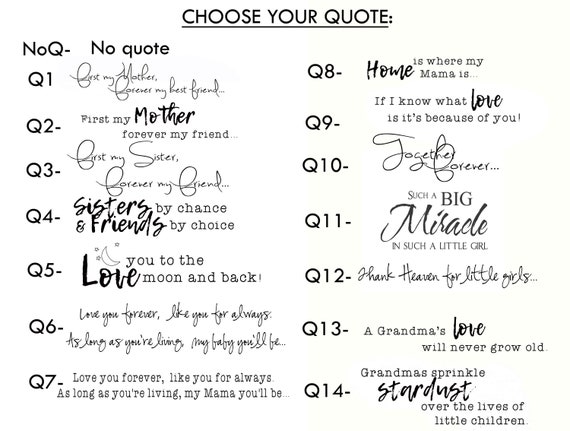 CHOOSE YOUR QUOTE:
NoQ- No quote
Q1 First my Mother,
Forever my best friend...
Q2- First my Mother
forever my friend...
Q3- First my Sister,
Forever my Friend...
Q4- Sisters by chance
& Friends by choice
Q5- Love you to the
moon and back!
Q6- Love you forever, like you for always.
As long as you're living, my baby you'll be...
Q7- Love you forever, like you for always.
As long as you're living, my Mama you'll be...
Q8- Home is where my
Mama is...
Q9- If I know what love
is it's because of you!
Q10- Together
Forever...
Q11- SUCH A BIG
Miracle
IN SUCH A LITTLE GIRL
Q12- Thank Heaven for little girls...
Q13- A Grandma's love
will never grow old.
Q14- Grandmas sprinkle
stardust
over the lives of
little children.